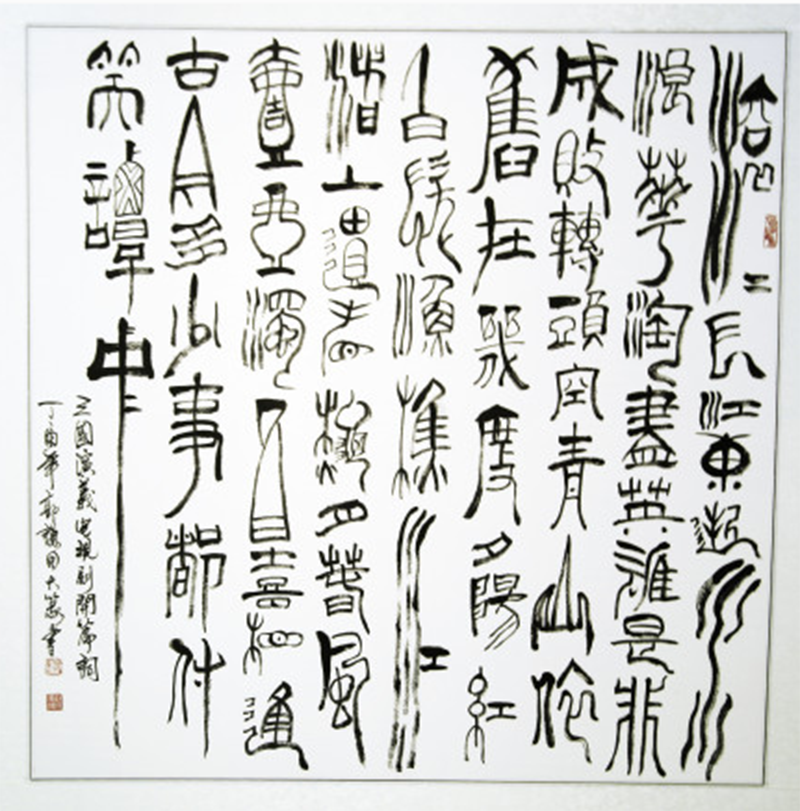 滾二長江東逝水
浪華淘盡英雄是非
成敗轉頭空青山依
舊在幾度夕陽紅
白髮漁樵江
渚上慣看秋月春風
壹壺濁酒喜相逢
古今多少事都付
笑譚中
三國演義電視劇開篇詞
丁酉年郭大篆書